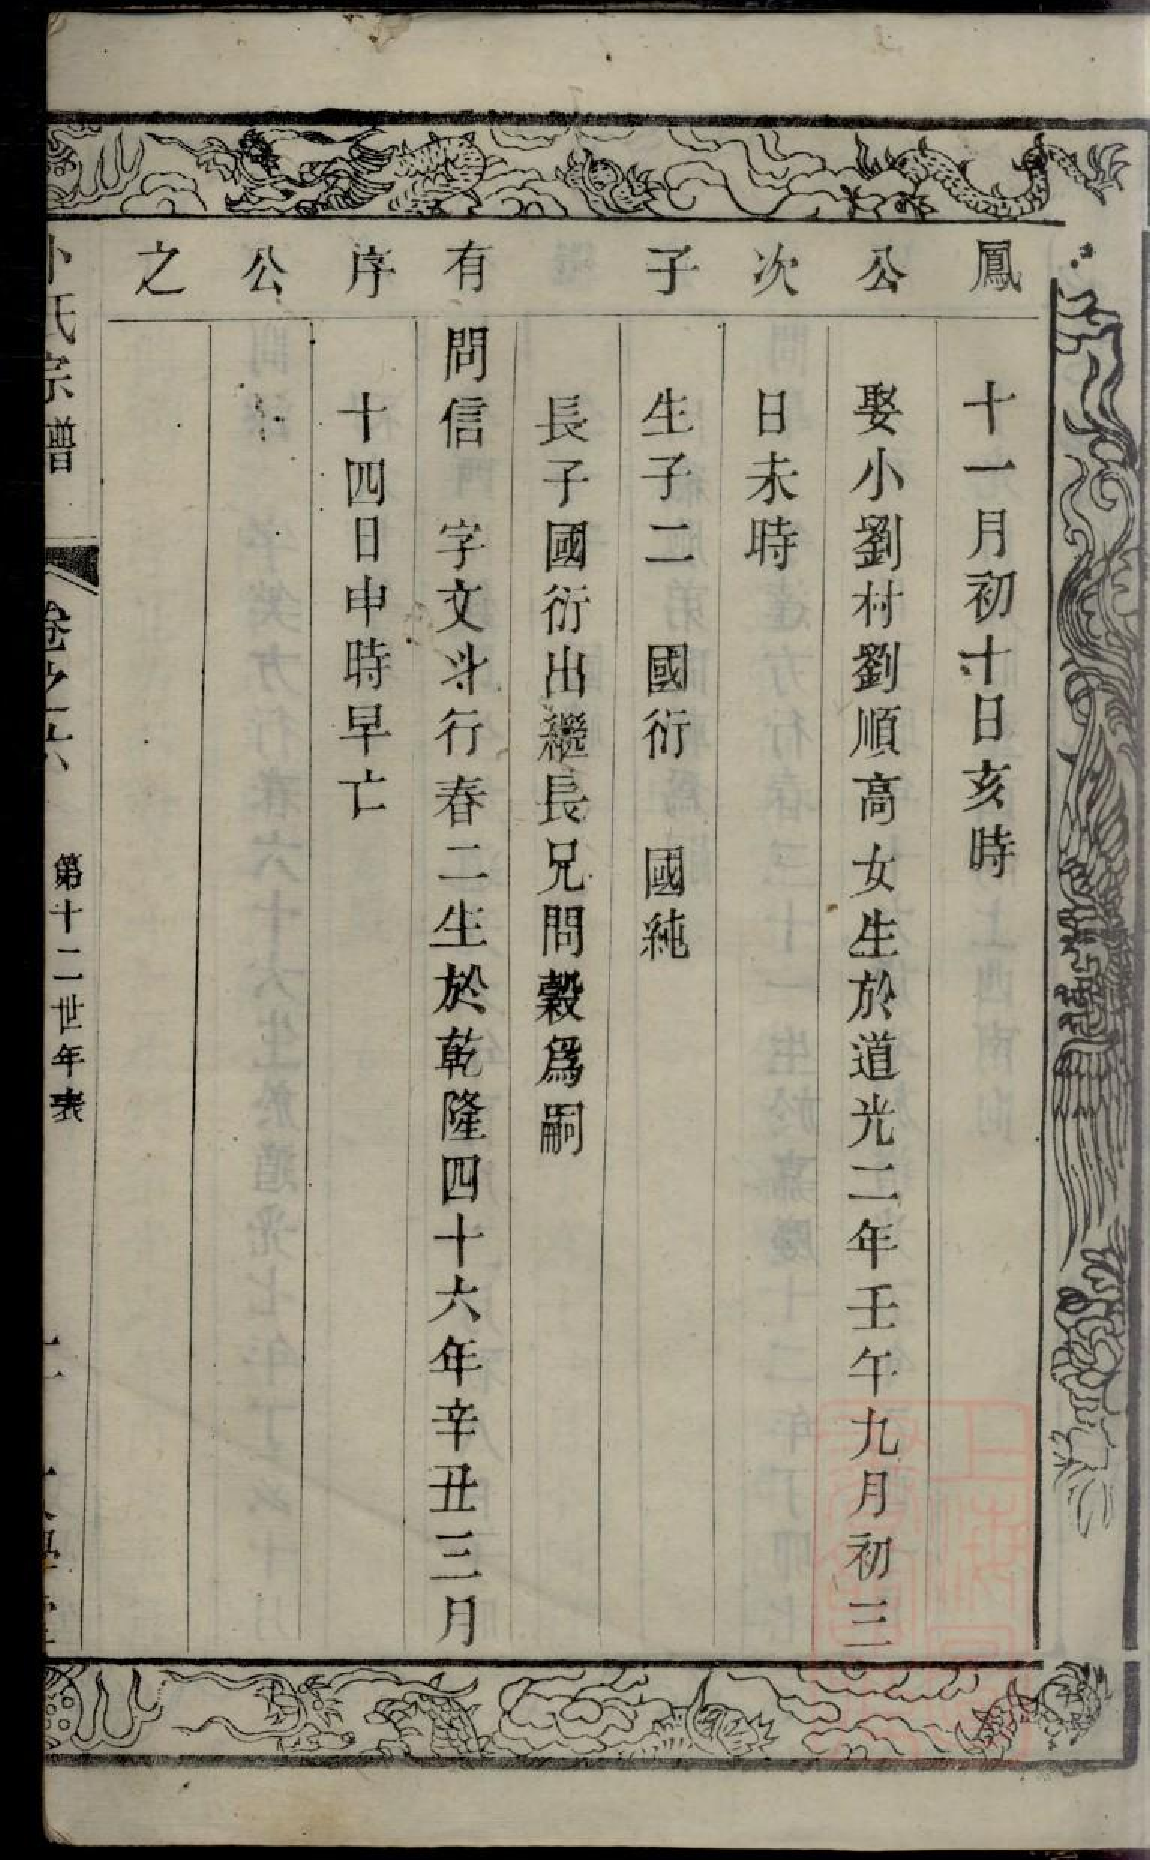 鳳 十一月初十日亥時
公 娶小劉村劉順高女生於道光二年壬午九月初三
次 日未時
子 生子二 國衍 國純
長子國衍出繼長兄問穀爲嗣
有 問信 字文斗行春二生於乾隆四十六年辛丑三月
序 十四日申時早亡
公
之
氏宗譜 卷之六 第十二世年表